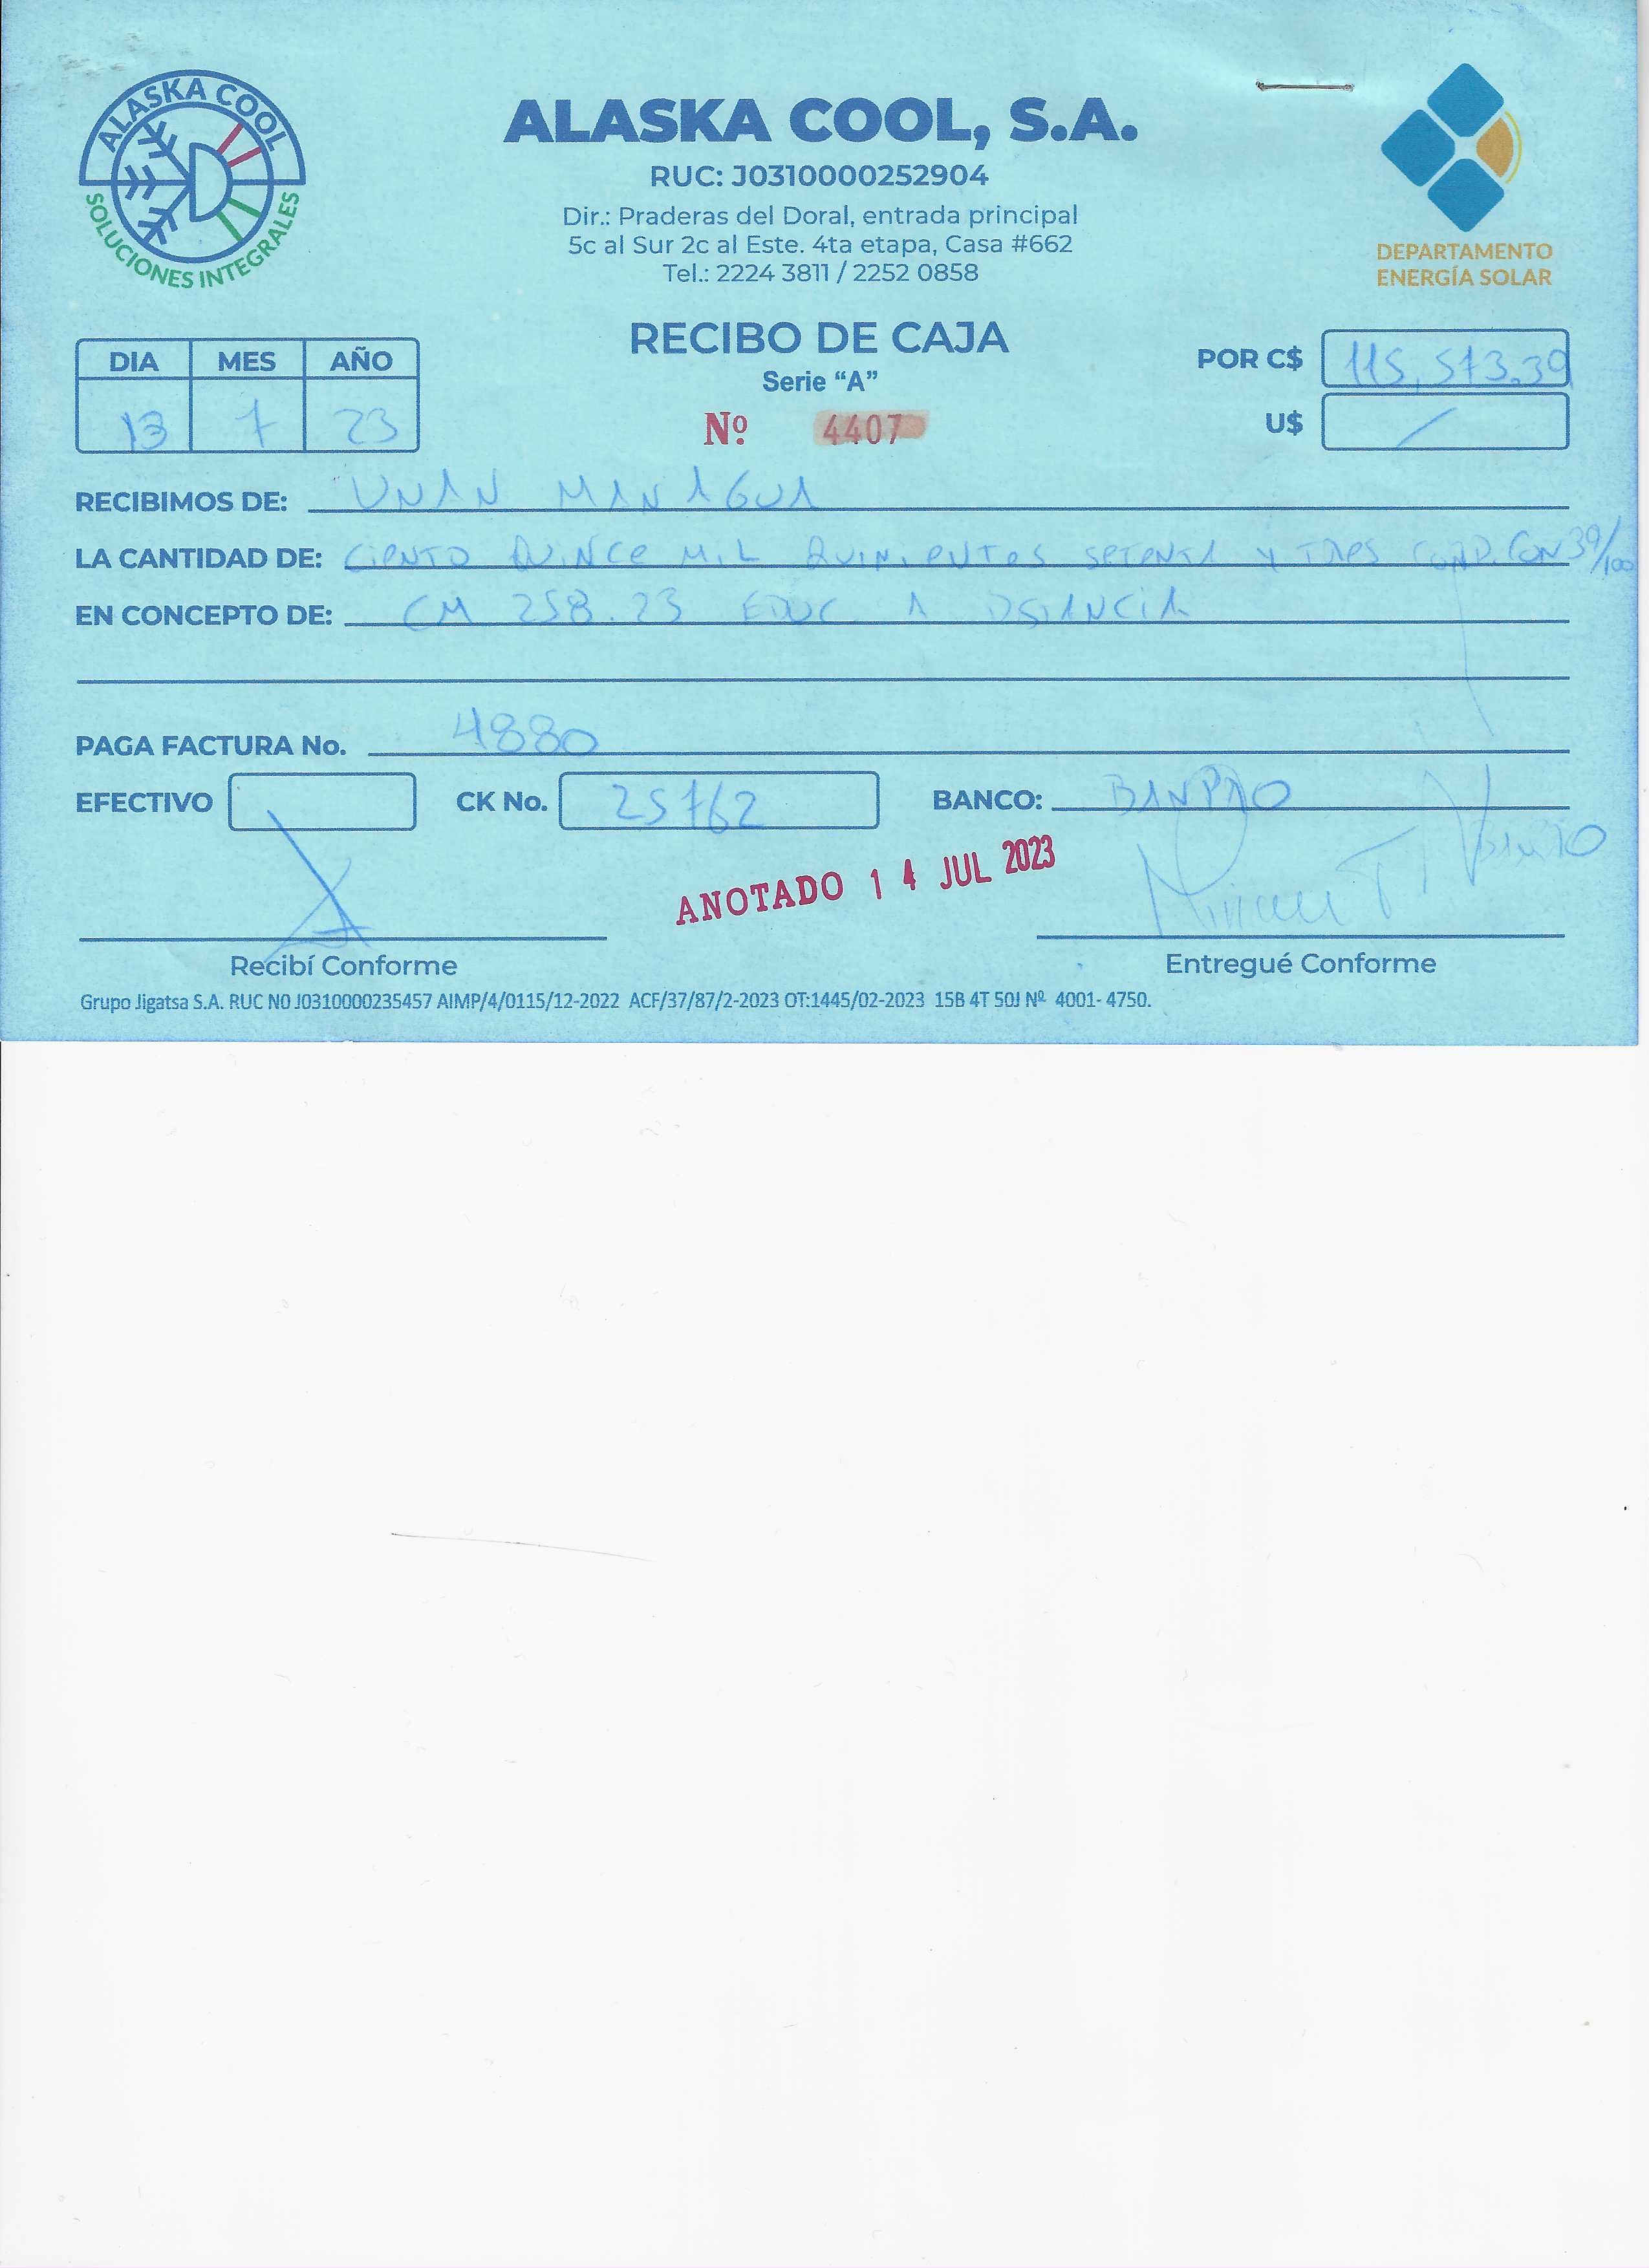 ALASKA COOL
SOLUCIONES INTEGRALES
ALASKA COOL, S.A.
RUC: J0310000252904
Dir.: Praderas del Doral, entrada principal
5c al Sur 2c al Este. 4ta etapa, Casa #662
Tel.: 2224 3811 / 2252 0858
DEPARTAMENTO
ENERGÍA SOLAR
RECIBO DE CAJA
Serie “A”
Nº 4407
DIA MES AÑO
13 7 23
POR C$ 115,573.39
U$
RECIBIMOS DE: UNAN MANAGUA
LA CANTIDAD DE: CIENTO QUINCE MIL QUINIENTOS SETENTA Y TRES CORD. CON 39/100
EN CONCEPTO DE: CM 258.23 EDUC A DSTANCIA
PAGA FACTURA No. 4880
EFECTIVO CK No. 25762 BANCO: BANPRO
ANOTADO 14 JUL 2023
Recibí Conforme Entregué Conforme
Grupo Jigatsa S.A. RUC N0 J0310000235457 AIMP/4/0115/12-2022 ACF/37/87/2-2023 OT:1445/02-2023 15B 4T 50J Nº 4001- 4750.